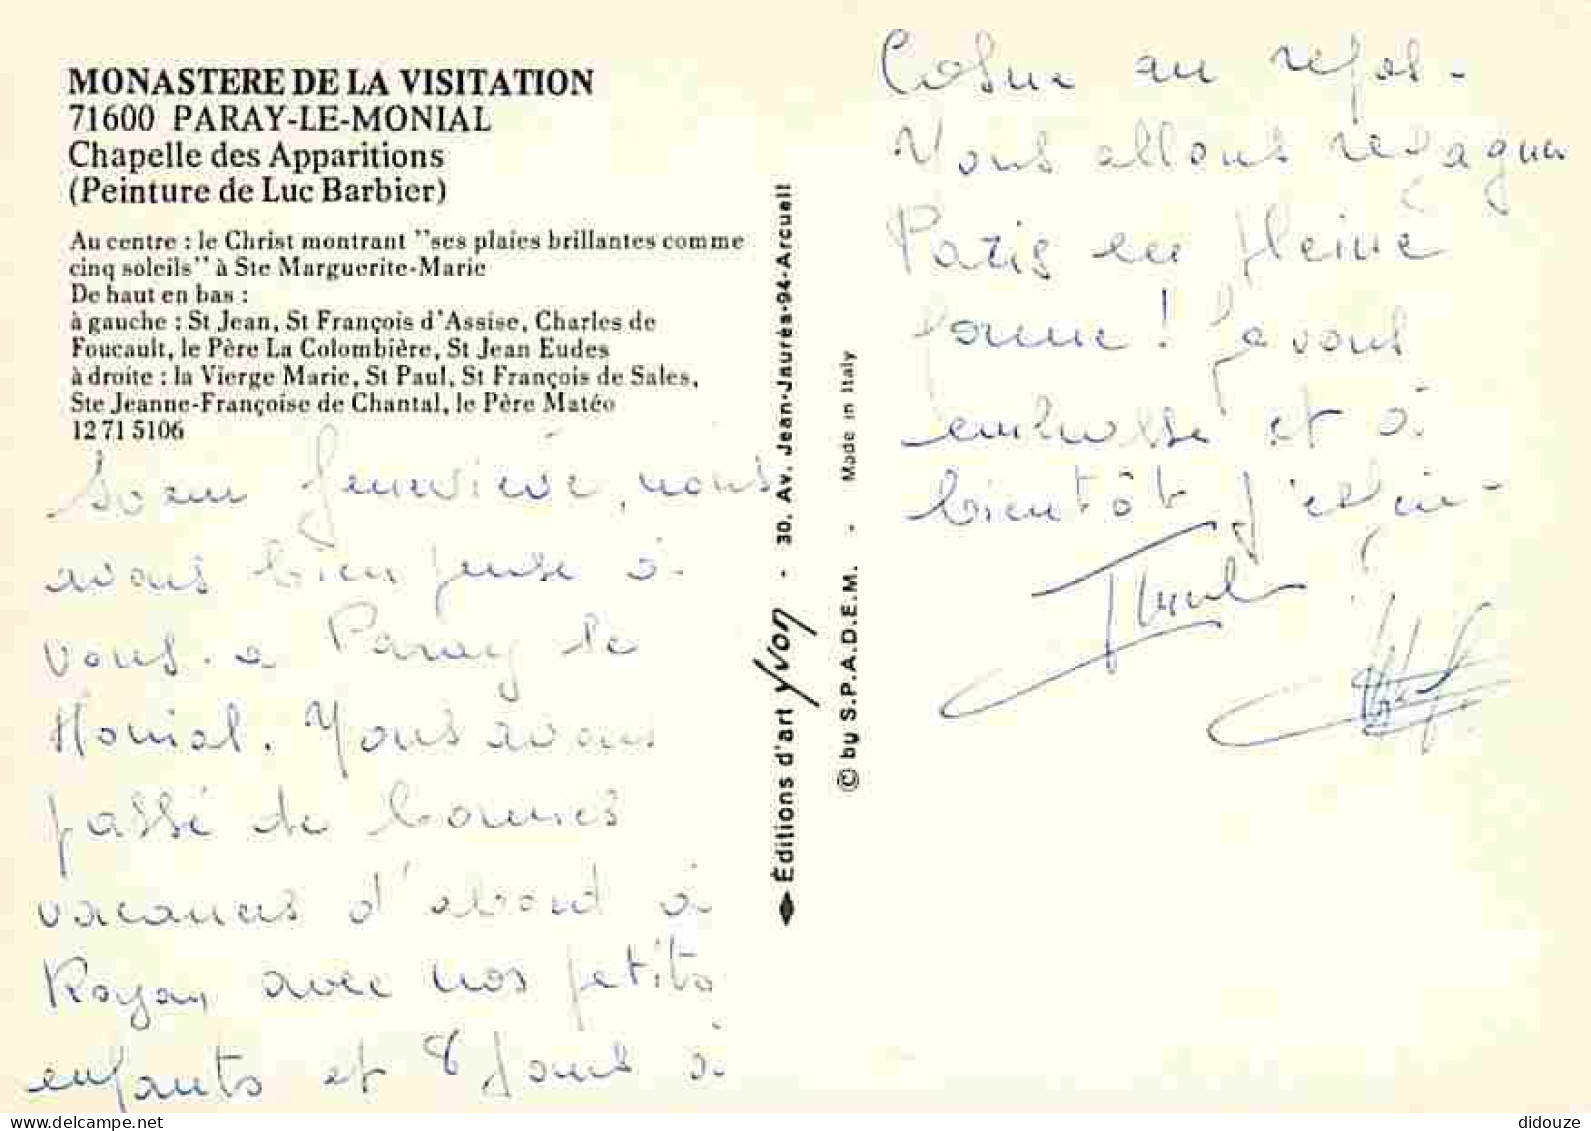 MONASTERE DE LA VISITATION
71600 PARAY-LE-MONIAL
Chapelle des Apparitions
(Peinture de Luc Barbier)
Au centre : le Christ montrant "ses plaies brillantes comme
cinq soleils" à Ste Marguerite-Marie
De haut en bas :
à gauche : St Jean, St François d'Assise, Charles de
Foucault, le Père La Colombière, St Jean Eudes
à droite : la Vierge Marie, St Paul, St François de Sales,
Ste Jeanne-Françoise de Chantal, le Père Matéo
12 71 5106
Soeur Geneviève, nous
avons bien pensé à
vous à Paray le
Monial. Nous avons
passé de bonnes
vacances d'abord à
Royan, avec nos petits
enfants et 8 jours à
Éditions d'art yvon - 30, Av. Jean-Jaurès-94-Arcueil
© by S.P.A.D.E.M. - Made in Italy
Cosne au repos.
Nous allons regagner
Paris en pleine
forme ! Je vous
embrasse et à
bientôt j'espère
delcampe.net
didouze